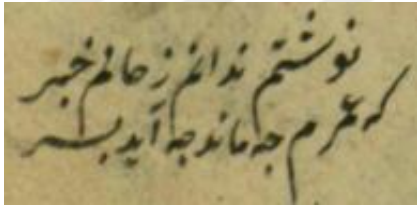 نوشتم ندانم ز حالم خبر
که عمرم چه ماند چه آید بسر